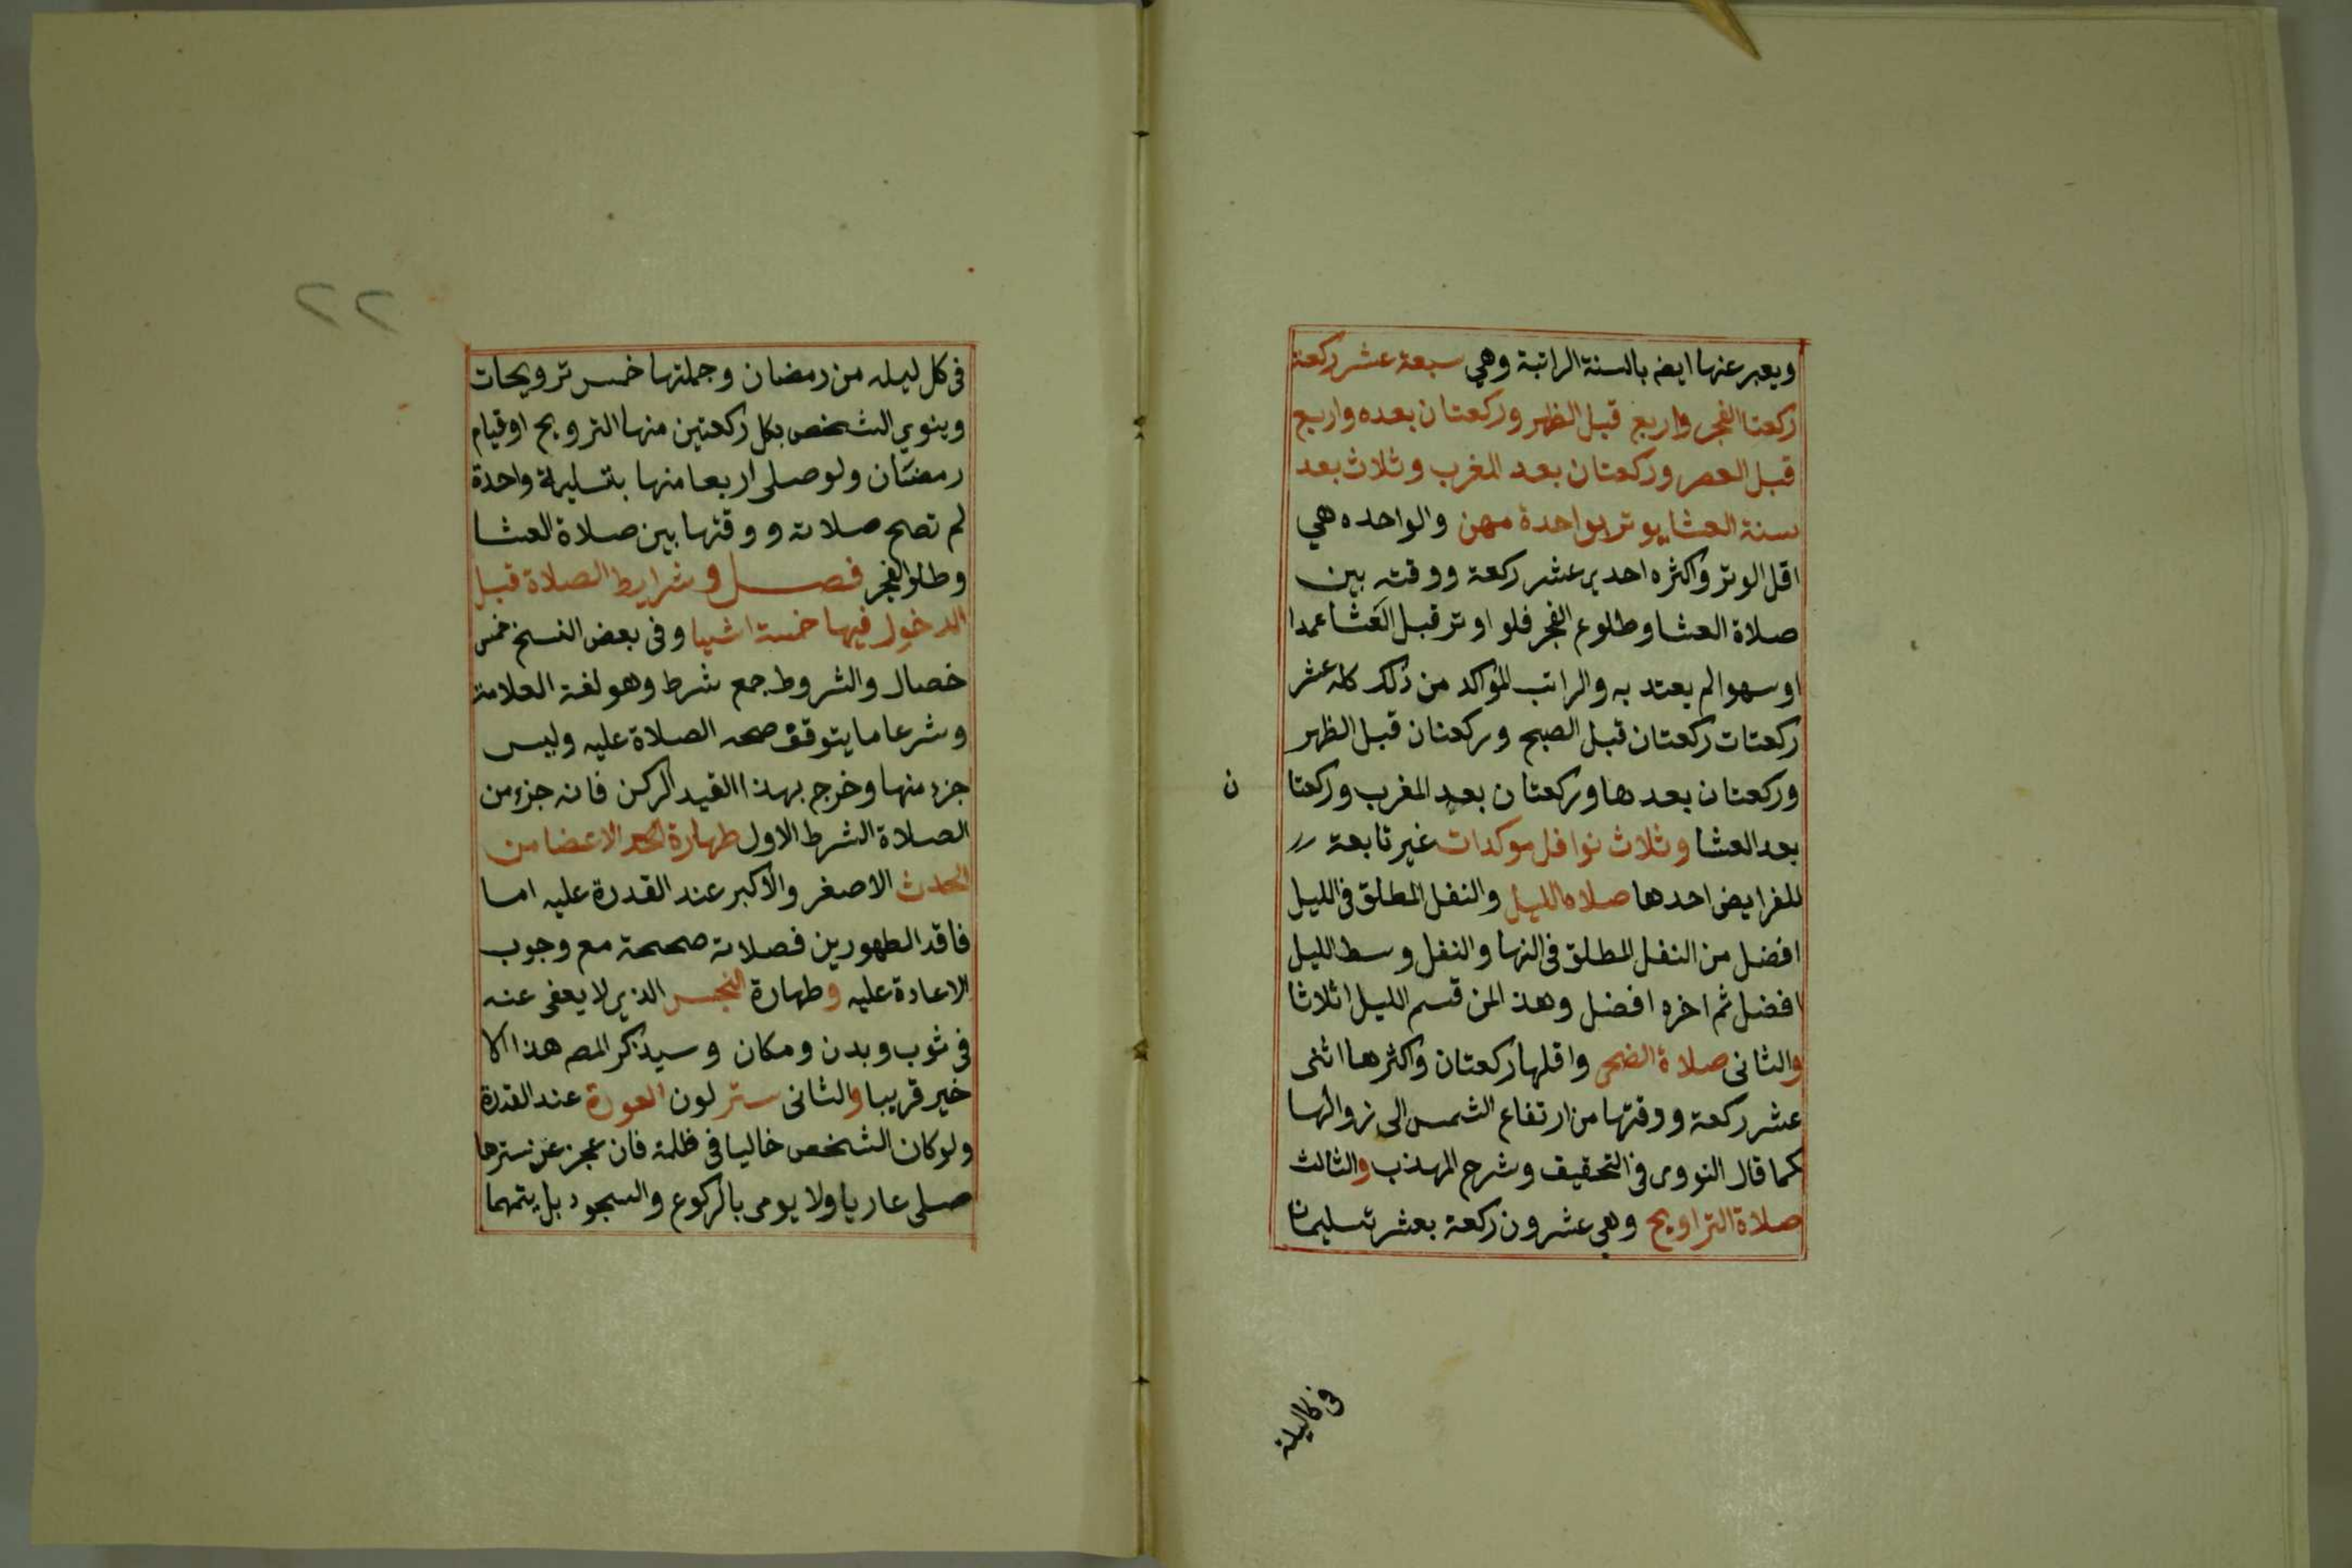 ويعبر عنها ايضه بالسنة الراتبة وهي سبعة عشر ركعة
ركعتا الفجر واربع قبل الظهر وركعتان بعده واربع
قبل العصر وركعتان بعد المغرب وثلاث بعد
سنة العشا يوتر بواحدة مهن والواحده هي
اقل الوتر واكثره احدى عشر ركعة ووقته بين
صلاة العشا وطلوع الفجر فلو اوتر قبل العشا عمدا
او سهوا لم يعتد به والراتب المؤاكد من ذلك كله عشر
ركعتات ركعتان قبل الصبح وركعتان قبل الظهر
وركعتان بعدها وركعتان بعد المغرب وركعتا
ن
بعد العشا وثلاث نوافل موكدات غير تابعة
للفرايض احدها صلاه الليل والنفل المطلق في الليل
افضل من النفل المطلق في النها والنفل وسط الليل
افضل ثم اخره افضل وهذ المن قسم الليل اثلاثا
والثانى صلاة الضحى واقلها ركعتان واكثرها اثنى
عشر ركعة ووقتها من ارتفاع الشمس الى زوالها
كما قال النووى في التحقيق وشرح المهذب والثالث
صلاة التراويح وهي عشرون ركعة بعشر تسليمات
في كل ليلة
٢٢
في كل ليله من رمضان وجملتها خمس ترويحات
وينوي الشخص بكل ركعتين منها الترويح او قيام
رمضان ولو صلى اربعا منها بتسليمة واحدة
لم تصح صلاته ووقتها بين صلاة العشا
وطلوا الفجر فصل وشرايط الصلاة قبل
الدخول فيها خمسة اشيا وفى بعض النسخ خمس
خصال والشروط جمع شرط وهو لغة العلامة
وشرعا ما يتوقف صحه الصلاة عليه وليس
جزء منها وخرج بهذا القيد الركن فانه جزء من
الصلاة الشرط الاول طهارة الاعضا من
الحدث الاصغر والاكبر عند القدرة عليه اما
فاقد الطهورين فصلاته صحيحة مع وجوب
الاعادة عليه وطهارة النجس الذي لا يعفى عنه
في ثوب وبدن ومكان وسيذكر المصه هذا الا
خير قريبا والثانى ستر لون العورة عند القدرة
ولو كان الشخص خاليا في ظلمة فان عجز عن سترها
صلى عاريا ولا يومى بالركوع والسجود بل يتمهما